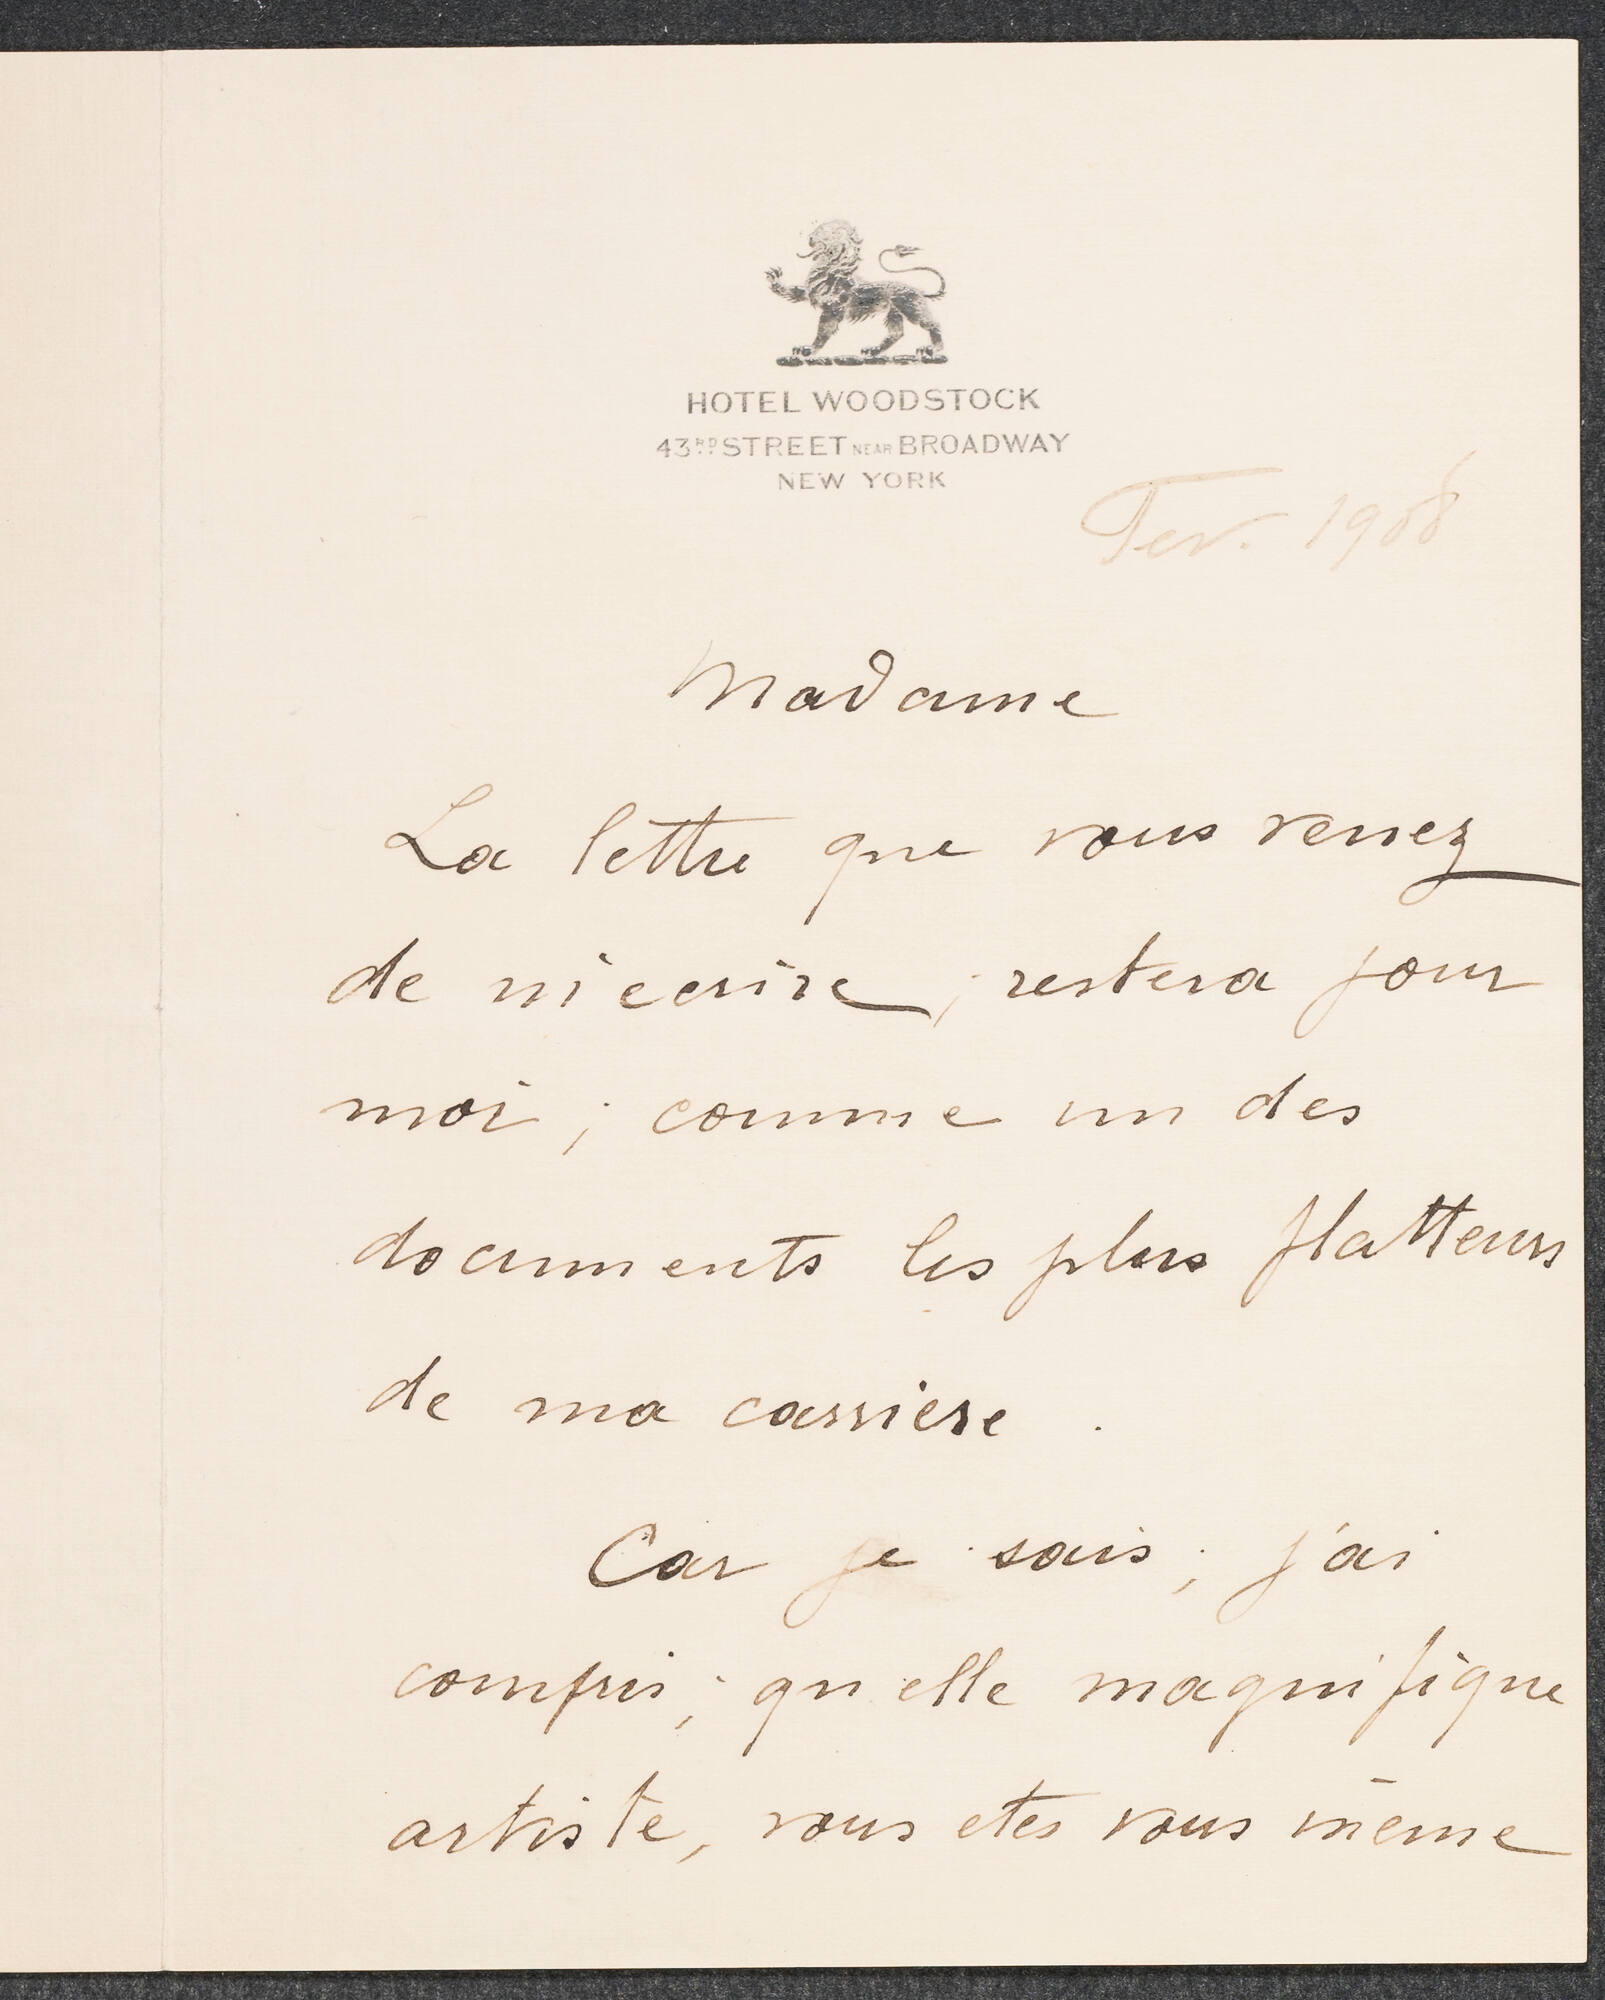 HOTEL WOODSTOCK
43RD STREET NEAR BROADWAY
NEW YORK
Fev. 1908
Madame
La lettre que vous venez
de m'ecrire, restera pour
moi, comme un des
documents les plus flatteurs
de ma carriere.
Car je sais, j'ai
compris, qu'elle magnifique
artiste, vous etes vous même